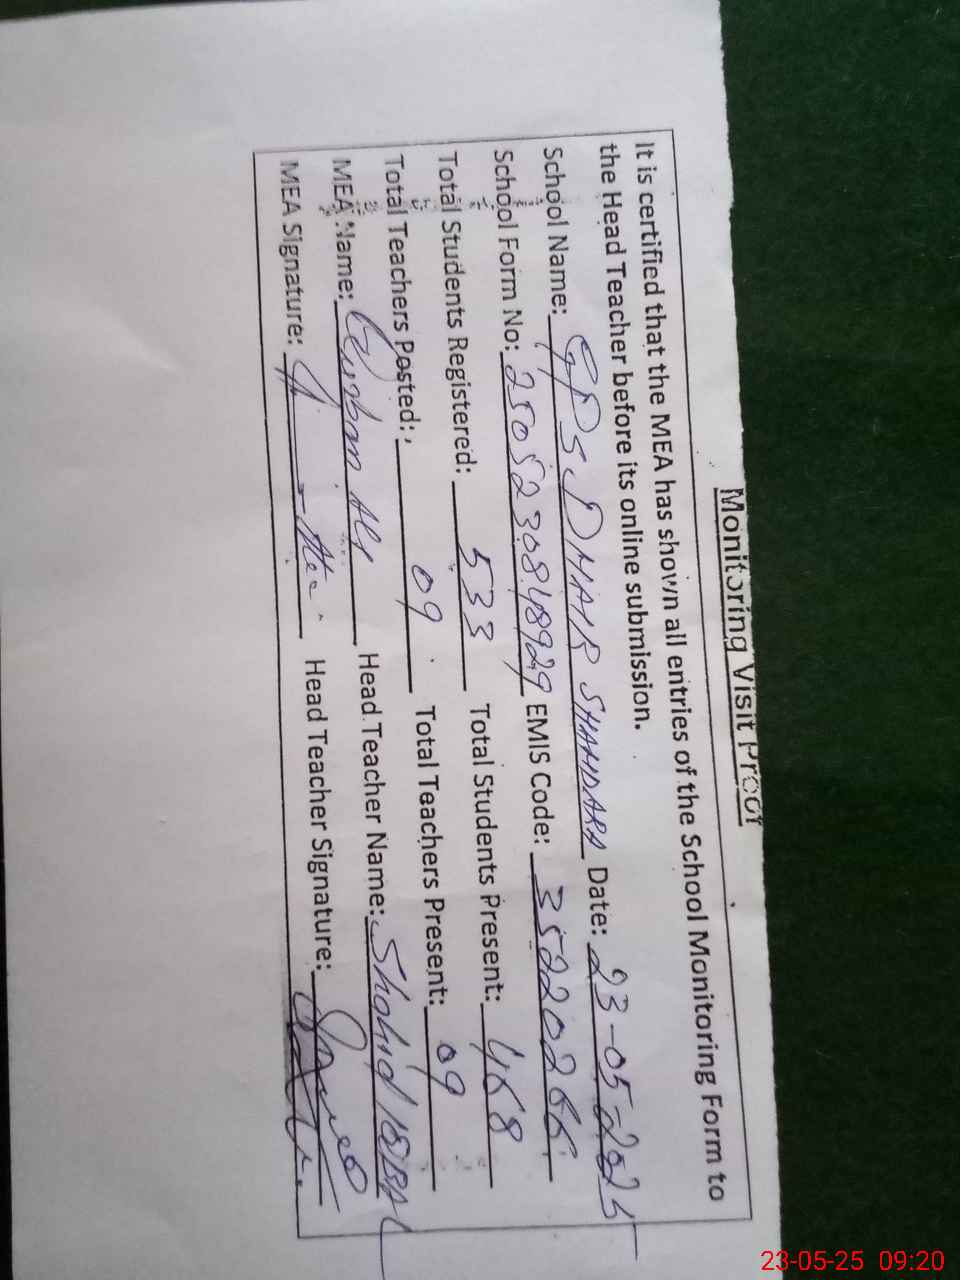 Monitoring Visit Proof
It is certified that the MEA has shown all entries of the School Monitoring Form to
the Head Teacher before its online submission.
School Name: GPS DHAIR SHAHDARA Date: 23-05-2025
School Form No: 2505230848929 EMIS Code: 35220266
Total Students Registered: 533 Total Students Present: 468
Total Teachers Posted: 09 Total Teachers Present: 09
MEA Name: Ali Head Teacher Name: Shahid IQBAL
MEA Signature: Head Teacher Signature:
23-05-25 09:20